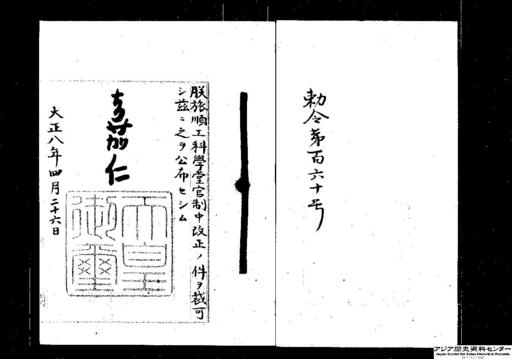 勅令第百六十号
朕旅順工科學堂官制中改正ノ件ヲ裁可
シ茲ニ之ヲ公布セシム
嘉仁
天皇
御璽
大正八年四月二十六日
アジア歴史資料センター
Japan Center for Asian Historical Records